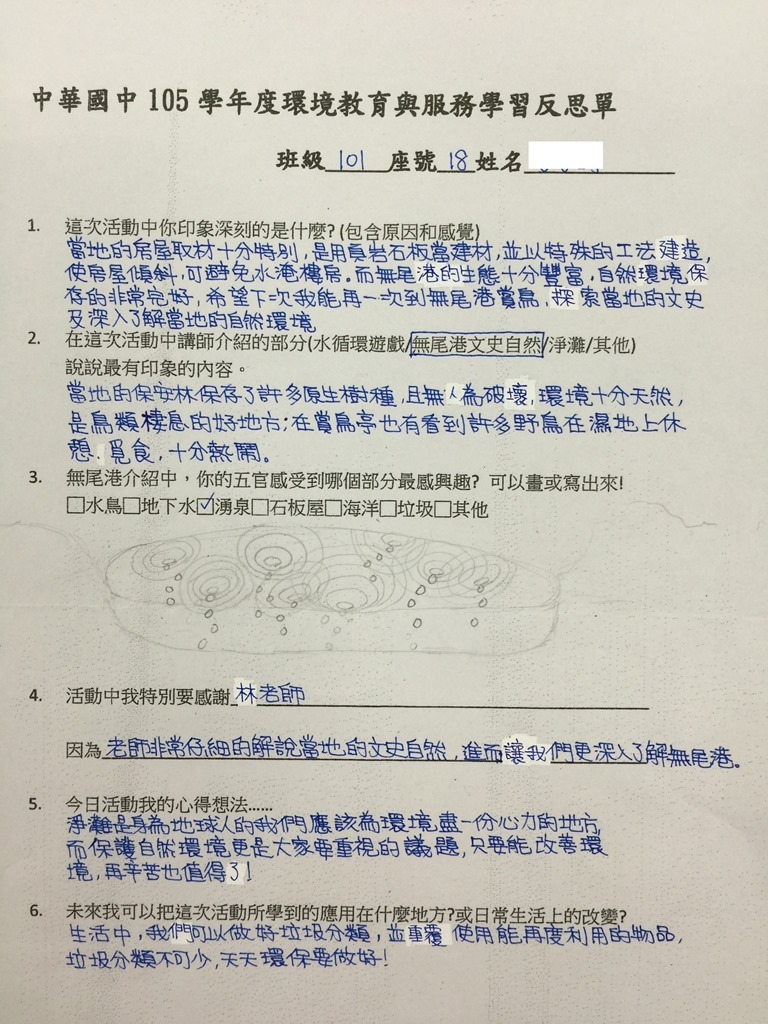 中華國中 105 學年度環境教育與服務學習反思單
班級 101 座號 18 姓名
1. 這次活動中你印象深刻的是什麼? (包含原因和感覺)
當地的房屋取材十分特別，是用頁岩石板當建材，並以特殊的工法建造，
使房屋傾斜，可避免水淹樓房。而無尾港的生態十分豐富，自然環境保
存的非常完好，希望下次我能再一次到無尾港賞鳥，探索當地的文史
及深入了解當地的自然環境
2. 在這次活動中講師介紹的部分(水循環遊戲/無尾港文史自然/淨灘/其他)
說說最有印象的內容。
當地的保安林保存了許多原生樹種，且無人為破壞，環境十分天然，
是鳥類棲息的好地方；在賞鳥亭也有看到許多野鳥在濕地上休
憩、覓食，十分熱鬧。
3. 無尾港介紹中，你的五官感受到哪個部分最感興趣? 可以畫或寫出來!
□水鳥□地下水☑湧泉□石板屋□海洋□垃圾□其他
4. 活動中我特別要感謝 林老師
因為 老師非常仔細的解說當地的文史自然，進而讓我們更深入了解無尾港。
5. 今日活動我的心得想法......
淨灘是身為地球人的我們應該為環境盡一份心力的地方
而保護自然環境更是大家要重視的議題，只要能改善環
境，再辛苦也值得了!
6. 未來我可以把這次活動所學到的應用在什麼地方?或日常生活上的改變?
生活中，我們可以做好垃圾分類，並重覆使用能再度利用的物品，
垃圾分類不可少，天天環保要做好!